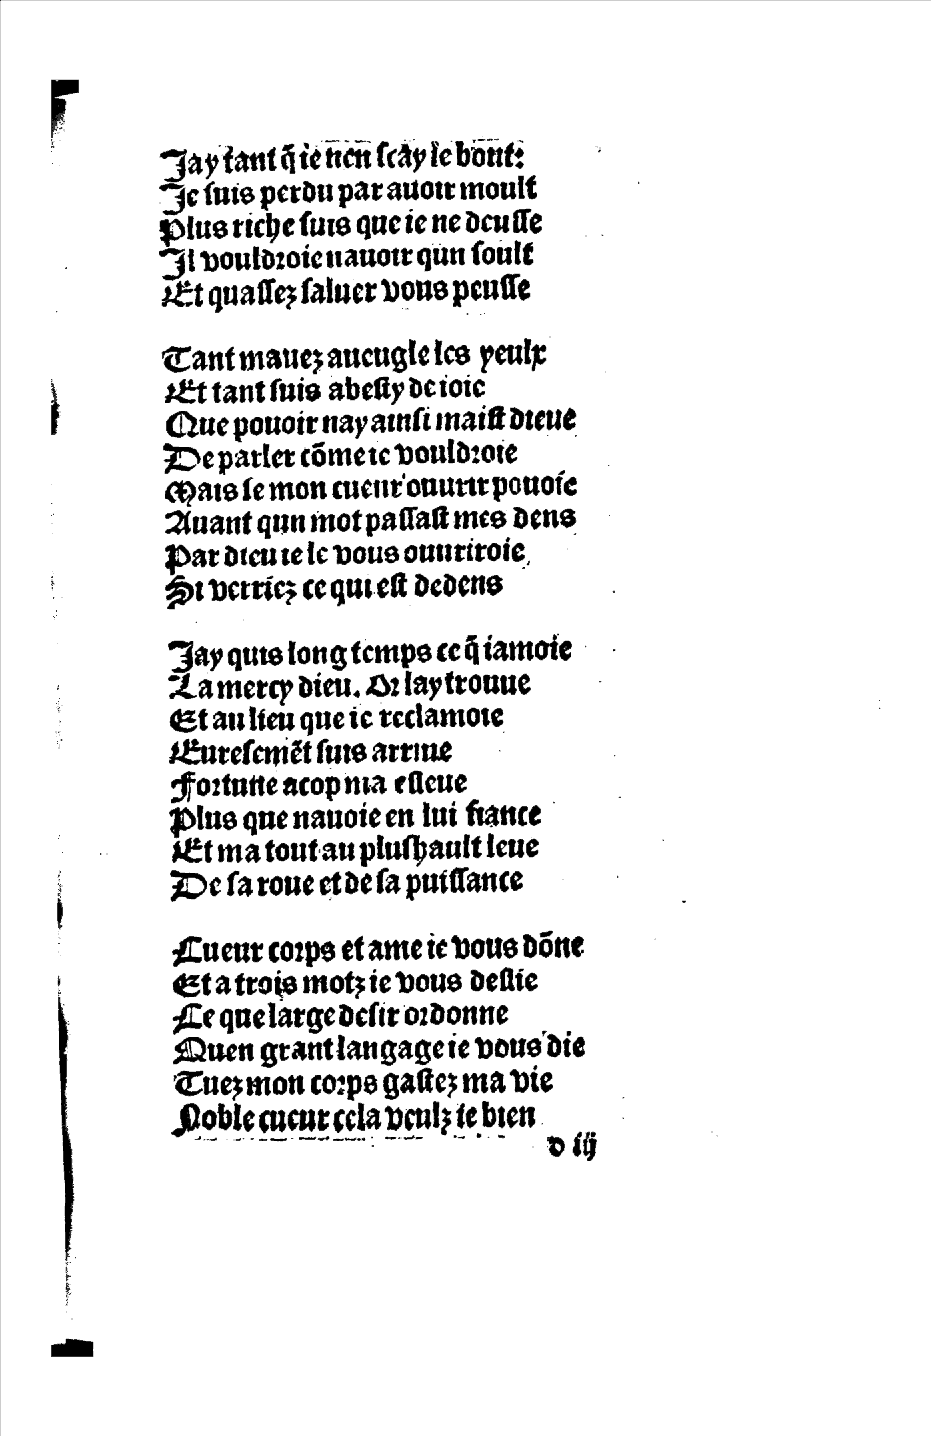 Jay tant q̃ ie nen scay le bont:
Je suis perdu par auoir moult
Plus riche suis que ie ne deusse
Il vouldroie nauoir qun soult
Et quassez saluer vous peusse
Tant mauez aueugle les yeulx
Et tant suis abesty de ioie
Que pouoir nay ainsi maist dieue
De parler cõme ie vouldroie
Mais se mon cueur ouurir pouoie
Auant qun mot passast mes dens
Par dieu ie le vous ouuriroie
Si verriez ce qui est dedens
Jay quis long temps ce q̃ iamoie
La mercy dieu. Or lay trouue
Et au lieu que ie reclamoie
Euresemẽt suis arriue
Fortune acop ma esleue
Plus que nauoie en lui fiance
Et ma tout au plushault leue
De sa roue et de sa puissance
Cueur corps et ame ie vous dõne
Et a trois motz ie vous deslie
Ce que large desir ordonne
Quen grant langage ie vous die
Tuez mon corps gastez ma vie
Noble cueur cela veulz ie bien
d iij